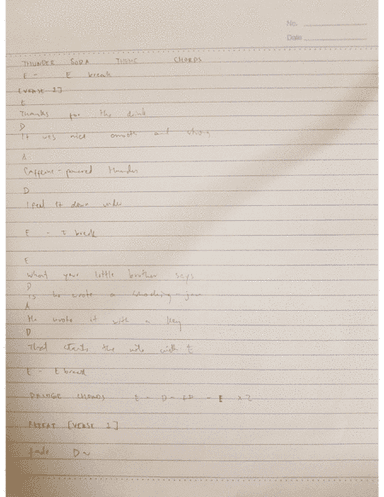 No.
Date
THUNDER SODA MUSIC CHORDS
E - E break
[VERSE 1]
E
Thanks for the drink
D
It was nice smooth and
A
Caffeine-powered thunder
D
I feel it down under
E - E break
E
What your little brother says
D
Is he wrote a
A
He wrote it with a
D
That the with
E - E break
CHORDS E - D -
REPEAT [VERSE 1]
fade